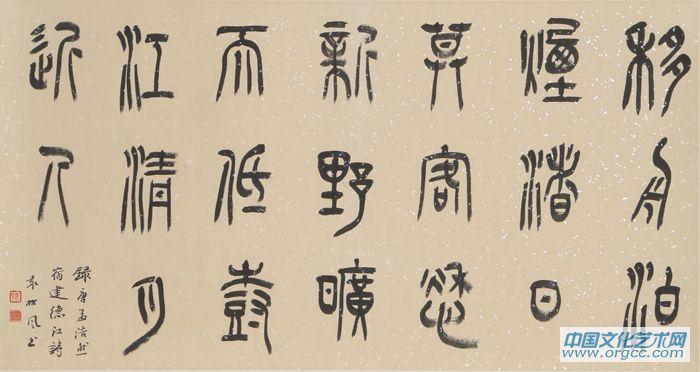 移舟泊
煙渚日
莫客愁
新野曠
天低樹
江清月
近人
錄唐孟浩然
宿建德江詩
袁風書
中国文化艺术网
www.orgcc.com